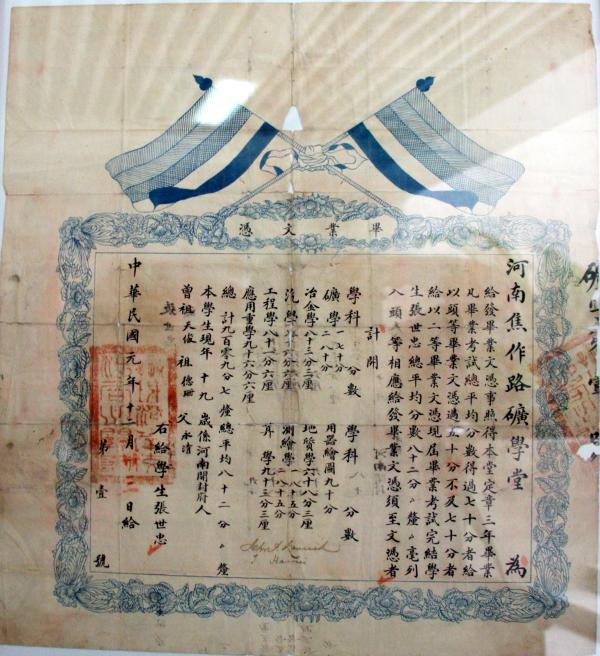 畢業文憑
河南焦作路礦學堂 為
給發畢業文憑事照得本堂定章三年畢業
凡畢業考試總平均分數得過七十分者給
以頭等畢業文憑過五十分不及七十分者
給以二等畢業文憑現屆畢業考試完結學
生張世忠總平均分數八十二分 釐 毫列
入頭等相應給發畢業文憑須至文憑者
計開
學科 分數 學科 分數
礦學 用器繪圖九十分
冶金學八十三分三厘 地質學六十八分三厘
汽學 測繪學
工程學八十分六厘 算學九十三分三厘
應用重學九十六分六厘
總計九百零九分七釐總平均八十二分 釐
本學生現年十九歲係河南開封府人
曾祖天俊 祖德 父永清
右給學生張世忠
中華民國元年十二月 日給
第壹號